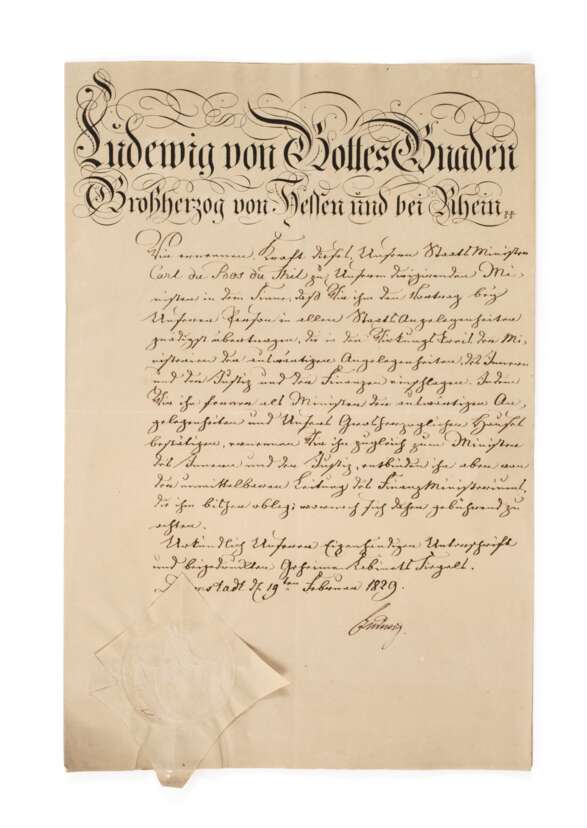 Ludewig von Gottes Gnaden
Großherzog von Hessen und bei Rhein
Wir ernennen, Kraft dieses, Unsern Staats Minister
Carl du Bos du Thil zu Unserm dirigirenden Mi-
nister in dem Sinne, daß Wir ihm den Vortrag bey
Unserer Person in allen Staats Angelegenheiten
gnädigst übertragen, die in den Wirkungskreis der Mi-
nisterien der auswärtigen Angelegenheiten, des Innern
und der Justiz und der Finanzen einschlagen. Indem
Wir ihn ferner als Minister der auswärtigen An-
gelegenheiten und Unseres Großherzoglichen Hauses
bestätigen, ernennen Wir ihn zugleich zum Minister
des Innern und der Justiz, entbinden ihn aber von
der unmittelbaren Leitung des Finanz Ministeriums,
die ihm bisher oblag; wornach sich dahin gebührend zu
achten.
Urkundlich Unserer Eigenhändigen Unterschrift
und beigedruckten Geheimen Cabinets Siegels.
Darmstadt d. 19ten Februar 1829.
Ludewig